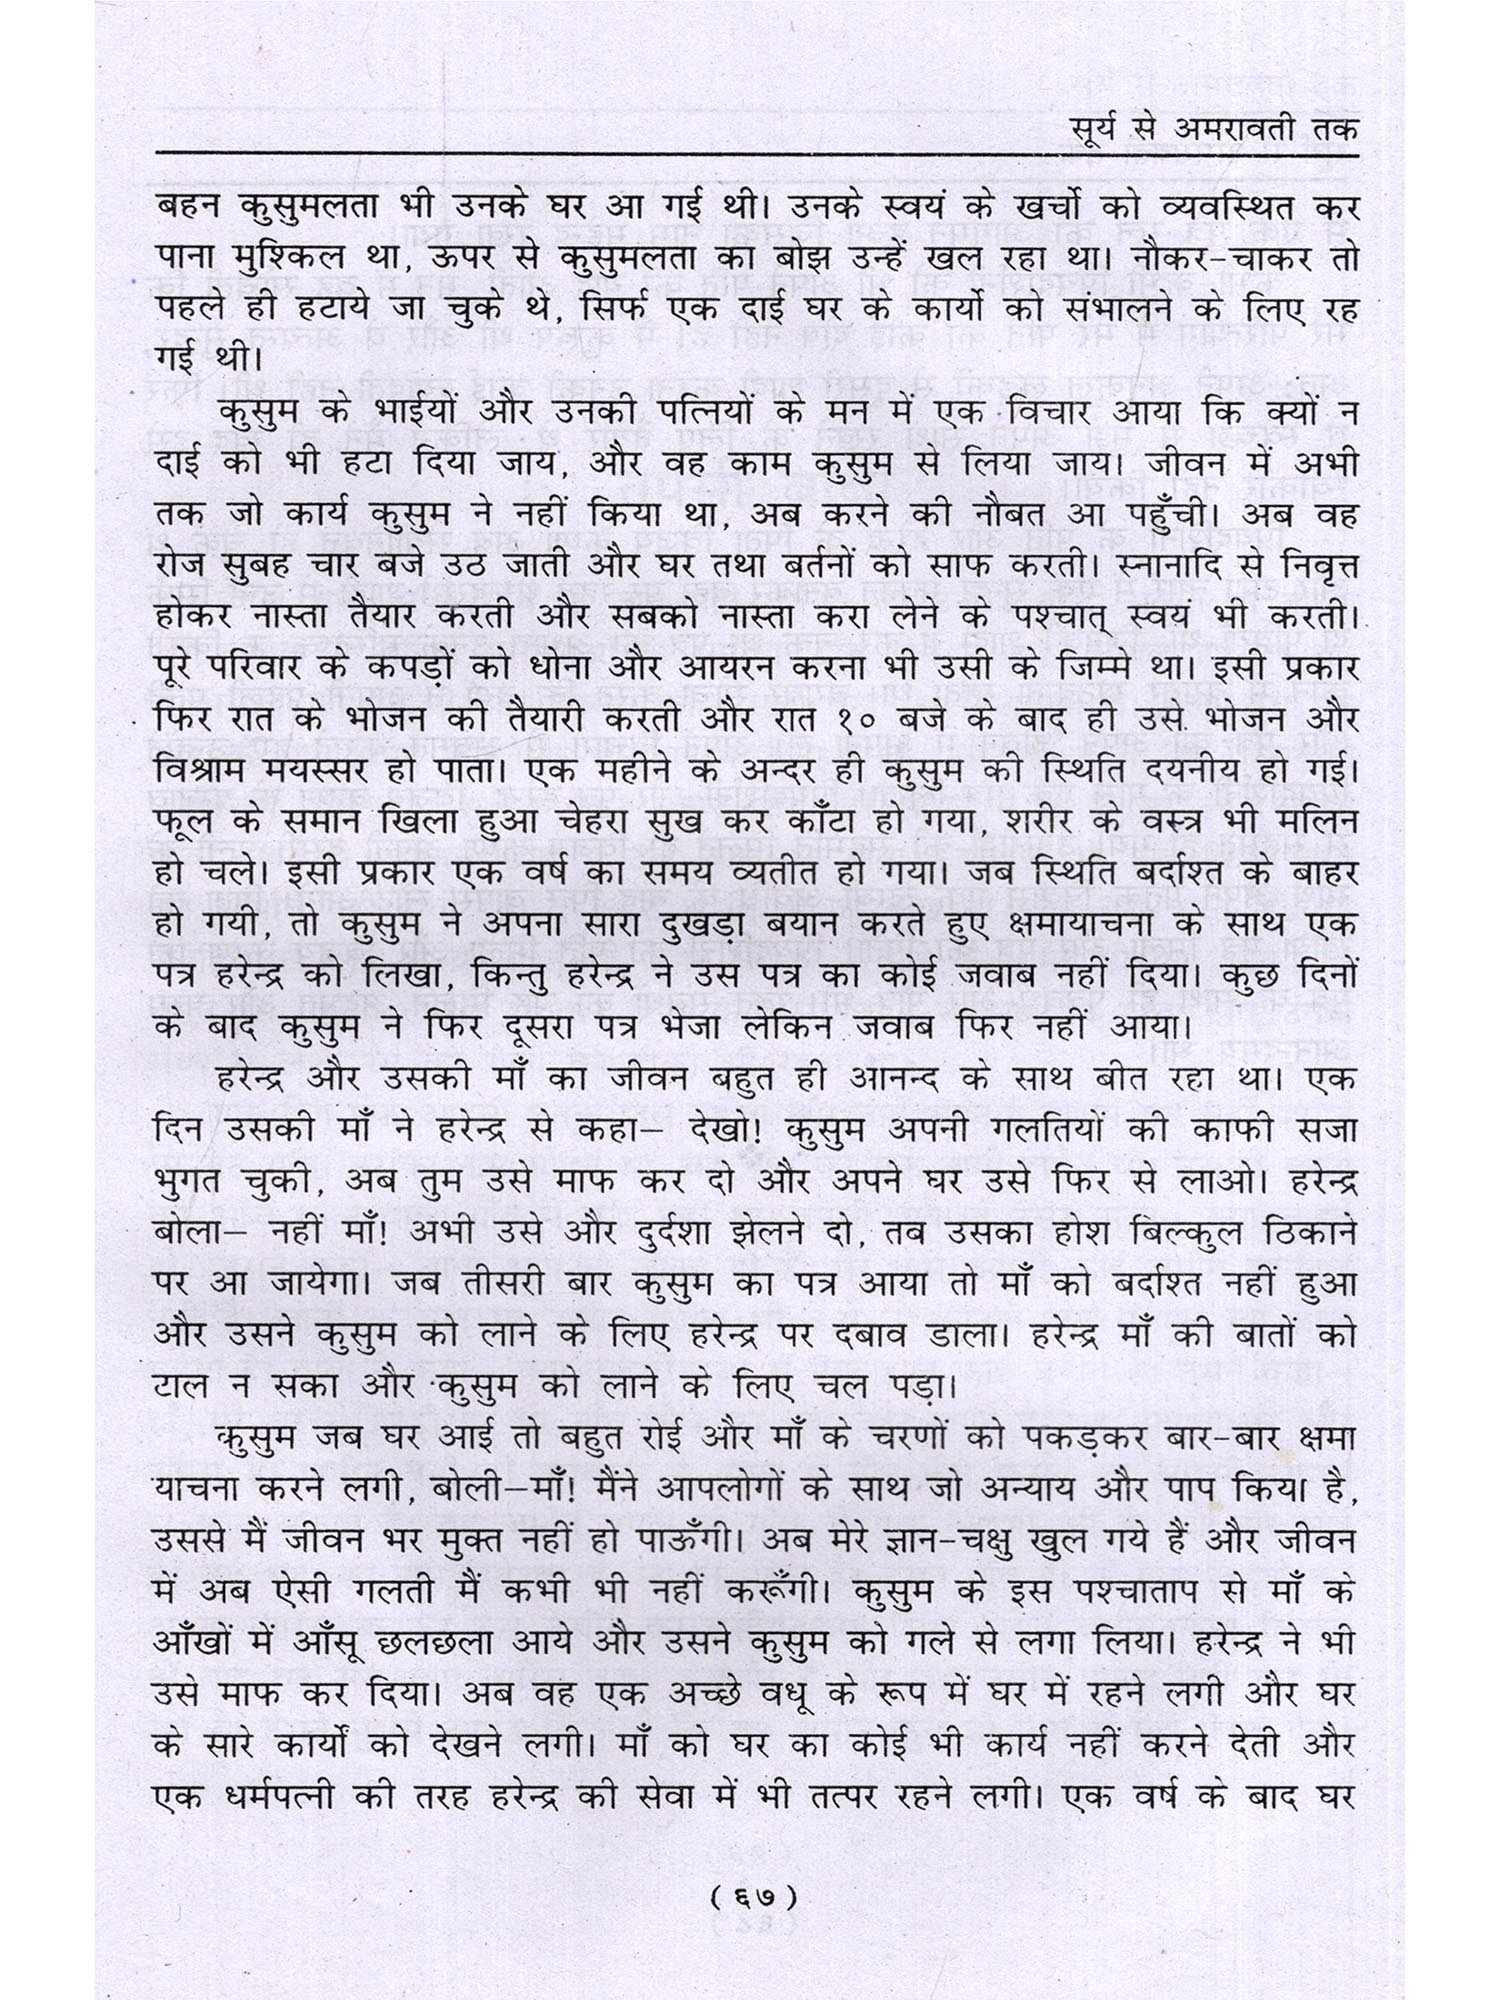 सूर्य से अमरावती तक
बहन कुसुमलता भी उनके घर आ गई थी। उनके स्वयं के खर्चो को व्यवस्थित कर
पाना मुश्किल था, ऊपर से कुसुमलता का बोझ उन्हें खल रहा था। नौकर-चाकर तो
पहले ही हटाये जा चुके थे, सिर्फ एक दाई घर के कार्यो को संभालने के लिए रह
गई थी।
कुसुम के भाईयों और उनकी पत्नियों के मन में एक विचार आया कि क्यों न
दाई को भी हटा दिया जाय, और वह काम कुसुम से लिया जाय। जीवन में अभी
तक जो कार्य कुसुम ने नहीं किया था, अब करने की नौबत आ पहुँची। अब वह
रोज सुबह चार बजे उठ जाती और घर तथा बर्तनों को साफ करती। स्नानादि से निवृत्त
होकर नास्ता तैयार करती और सबको नास्ता करा लेने के पश्चात् स्वयं भी करती।
पूरे परिवार के कपड़ों को धोना और आयरन करना भी उसी के जिम्मे था। इसी प्रकार
फिर रात के भोजन की तैयारी करती और रात १० बजे के बाद ही उसे भोजन और
विश्राम मयस्सर हो पाता। एक महीने के अन्दर ही कुसुम की स्थिति दयनीय हो गई।
फूल के समान खिला हुआ चेहरा सुख कर काँटा हो गया, शरीर के वस्त्र भी मलिन
हो चले। इसी प्रकार एक वर्ष का समय व्यतीत हो गया। जब स्थिति बर्दाश्त के बाहर
हो गयी, तो कुसुम ने अपना सारा दुखड़ा बयान करते हुए क्षमायाचना के साथ एक
पत्र हरेन्द्र को लिखा, किन्तु हरेन्द्र ने उस पत्र का कोई जवाब नहीं दिया। कुछ दिनों
के बाद कुसुम ने फिर दूसरा पत्र भेजा लेकिन जवाब फिर नहीं आया।
हरेन्द्र और उसकी माँ का जीवन बहुत ही आनन्द के साथ बीत रहा था। एक
दिन उसकी माँ ने हरेन्द्र से कहा– देखो! कुसुम अपनी गलतियों की काफी सजा
भुगत चुकी, अब तुम उसे माफ कर दो और अपने घर उसे फिर से लाओ। हरेन्द्र
बोला– नहीं माँ! अभी उसे और दुर्दशा झेलने दो, तब उसका होश बिल्कुल ठिकाने
पर आ जायेगा। जब तीसरी बार कुसुम का पत्र आया तो माँ को बर्दाश्त नहीं हुआ
और उसने कुसुम को लाने के लिए हरेन्द्र पर दबाव डाला। हरेन्द्र माँ की बातों को
टाल न सका और कुसुम को लाने के लिए चल पड़ा।
कुसुम जब घर आई तो बहुत रोई और माँ के चरणों को पकड़कर बार-बार क्षमा
याचना करने लगी, बोली–माँ! मैंने आपलोगों के साथ जो अन्याय और पाप किया है,
उससे मैं जीवन भर मुक्त नहीं हो पाऊँगी। अब मेरे ज्ञान-चक्षु खुल गये हैं और जीवन
में अब ऐसी गलती मैं कभी भी नहीं करूँगी। कुसुम के इस पश्चाताप से माँ के
आँखों में आँसू छलछला आये और उसने कुसुम को गले से लगा लिया। हरेन्द्र ने भी
उसे माफ कर दिया। अब वह एक अच्छे वधू के रूप में घर में रहने लगी और घर
के सारे कार्यों को देखने लगी। माँ को घर का कोई भी कार्य नहीं करने देती और
एक धर्मपत्नी की तरह हरेन्द्र की सेवा में भी तत्पर रहने लगी। एक वर्ष के बाद घर
( ६७ )